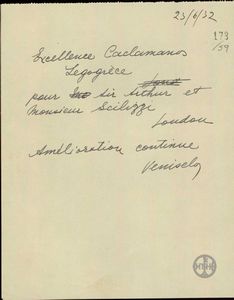 23/6/32
173
/59
Excellence Caclamanos
Legogrèce
pour Sir Arthur et
Monsieur Scilizzi
London
Amélioration continue
Veniselos